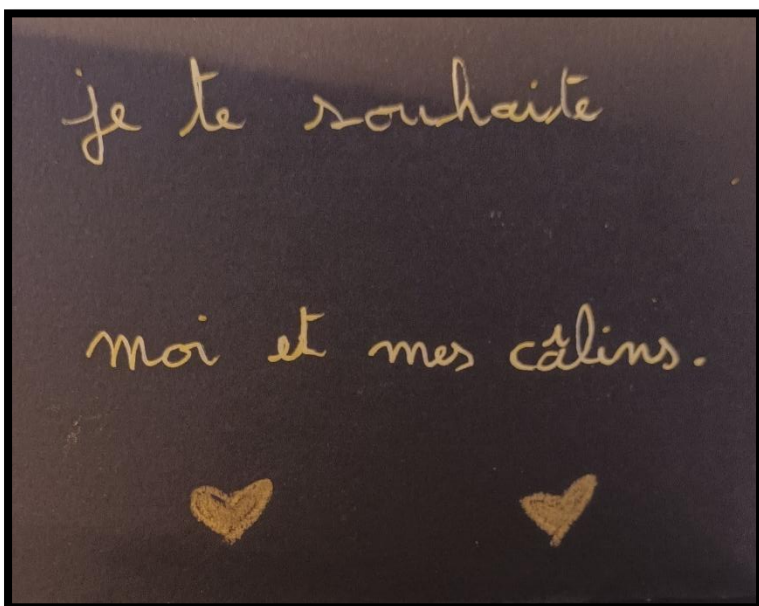 je te souhaite
moi et mes câlins.